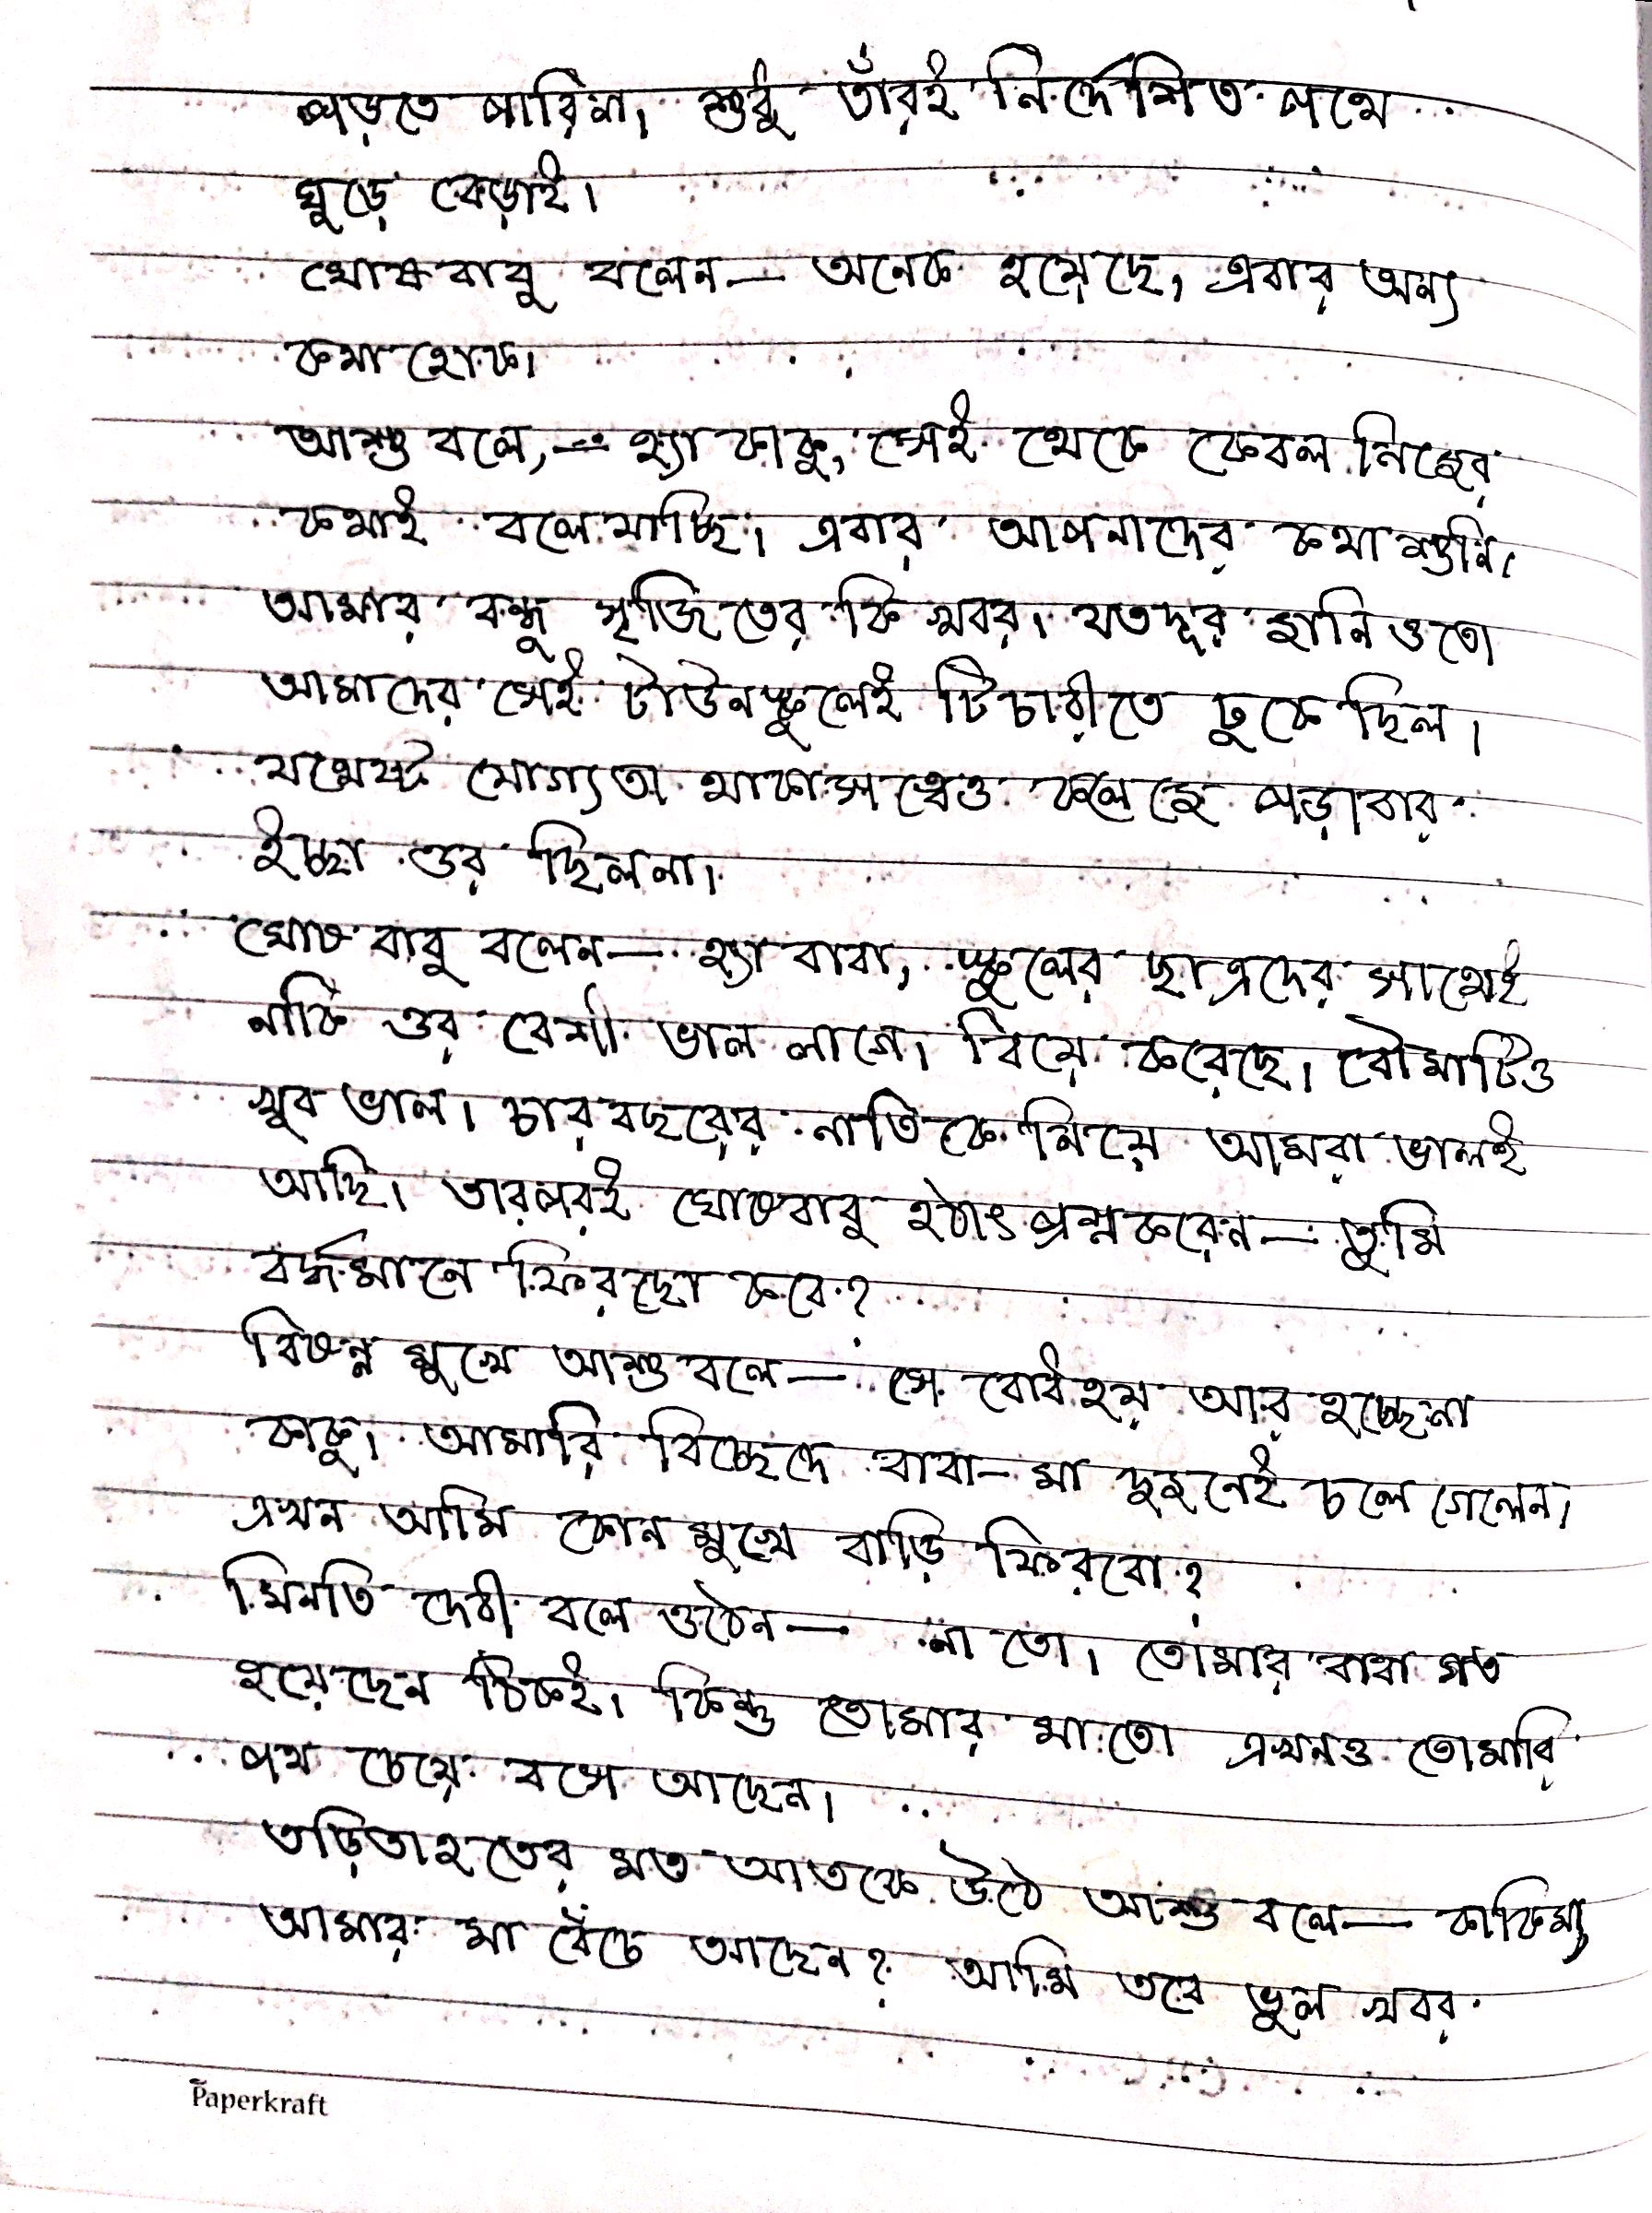 পড়তে পারিনা। শুধু তাঁরই নির্দেশিত পথে
ঘুড়ে বেড়াই।
ঘোষবাবু বলেন— অনেক হয়েছে, এবার অন্য
কথা হোক।
আশু বলে,— হ্যা কাকু, সেই থেকে কেবল নিজের
কথাই বলে যাচ্ছি। এবার আপনাদের কথা শুনি।
আমার বন্ধু সৃজিতের কি খবর। যতদূর জানি ওতো
আমাদের সেই টাউনস্কুলেই টিচারীতে ঢুকেছিল।
যথেষ্ট যোগ্যতা থাকা সত্ত্বেও কলেজে পড়াবার
ইচ্ছা ওর ছিলনা।
ঘোষবাবু বলেন— হ্যা বাবা, স্কুলের ছাত্রদের সাথেই
নাকি ওর বেশী ভাল লাগে। বিয়ে করেছে। বৌমাটিও
খুব ভাল। চার বছরের নাতিকে নিয়ে আমরা ভালই
আছি। তারপরই ঘোষবাবু হঠাৎ প্রশ্ন করেন— তুমি
বর্দ্ধমানে ফিরছো কবে?
বিষন্ন মুখে আশু বলে— সে বোধহয় আর হচ্ছেনা
কাকু। আমারি বিচ্ছেদে বাবা-মা দুজনেই চলে গেলেন।
এখন আমি কোন মুখে বাড়ি ফিরবো?
মিনতি দেবী বলে ওঠেন— না তো। তোমার বাবা গত
হয়েছেন ঠিকই। কিন্তু তোমার মা তো এখনও তোমারি
পথ চেয়ে বসে আছেন।
তড়িতাহতের মত আতকে উঠে আশু বলে— কাকিমা,
আমার মা বেঁচে আছেন? আমি তবে ভুল খবর
Paperkraft